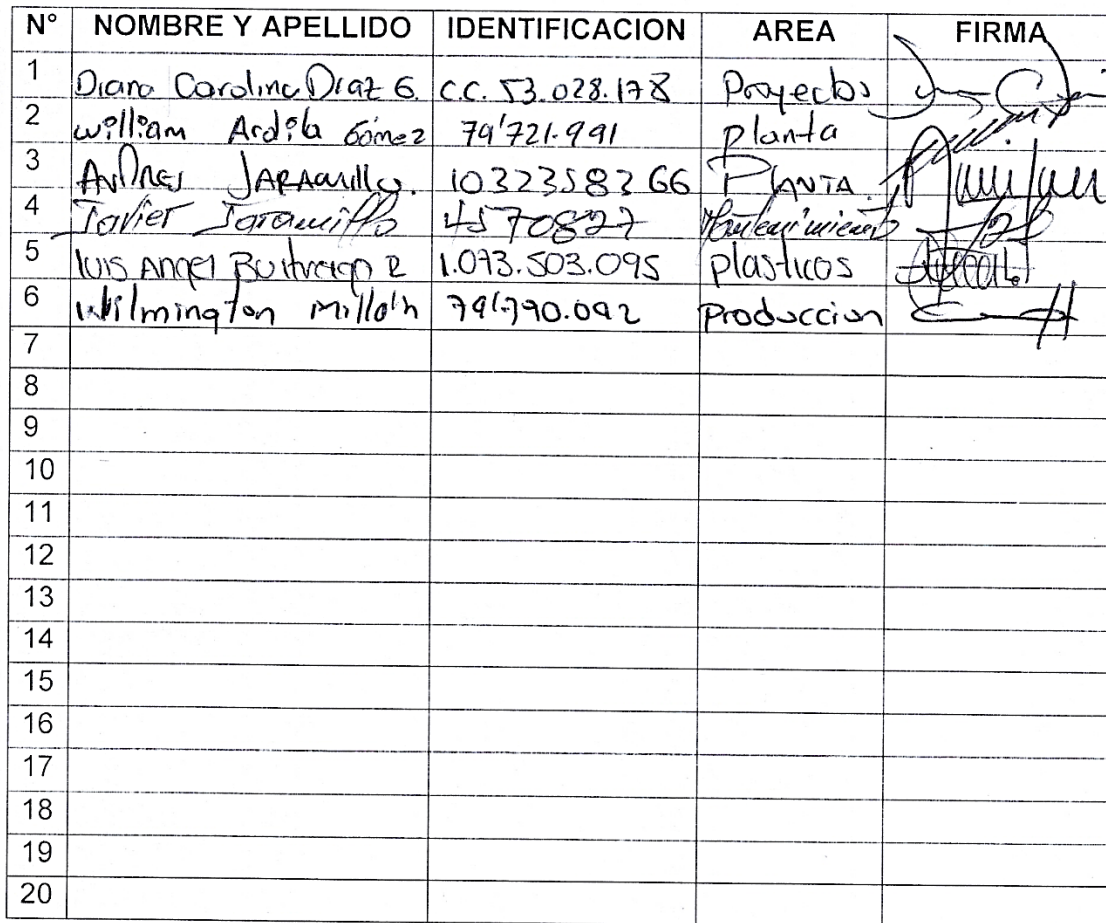 N° NOMBRE Y APELLIDO IDENTIFICACION AREA FIRMA
1 Diana Carolina Diaz G. C.C. 53.028.178 Proyectos
2 william Ardila Gómez 79'721.991 planta
3 Andres JARAmillo. 1032358266 PLANTA
4 Javier Jaramillo 4570827 Mantenimiento
5 luis Angel Buitrago R 1.073.503.095 plasticos
6 Wilmington Millán 79'790.092 Produccion
7
8
9
10
11
12
13
14
15
16
17
18
19
20